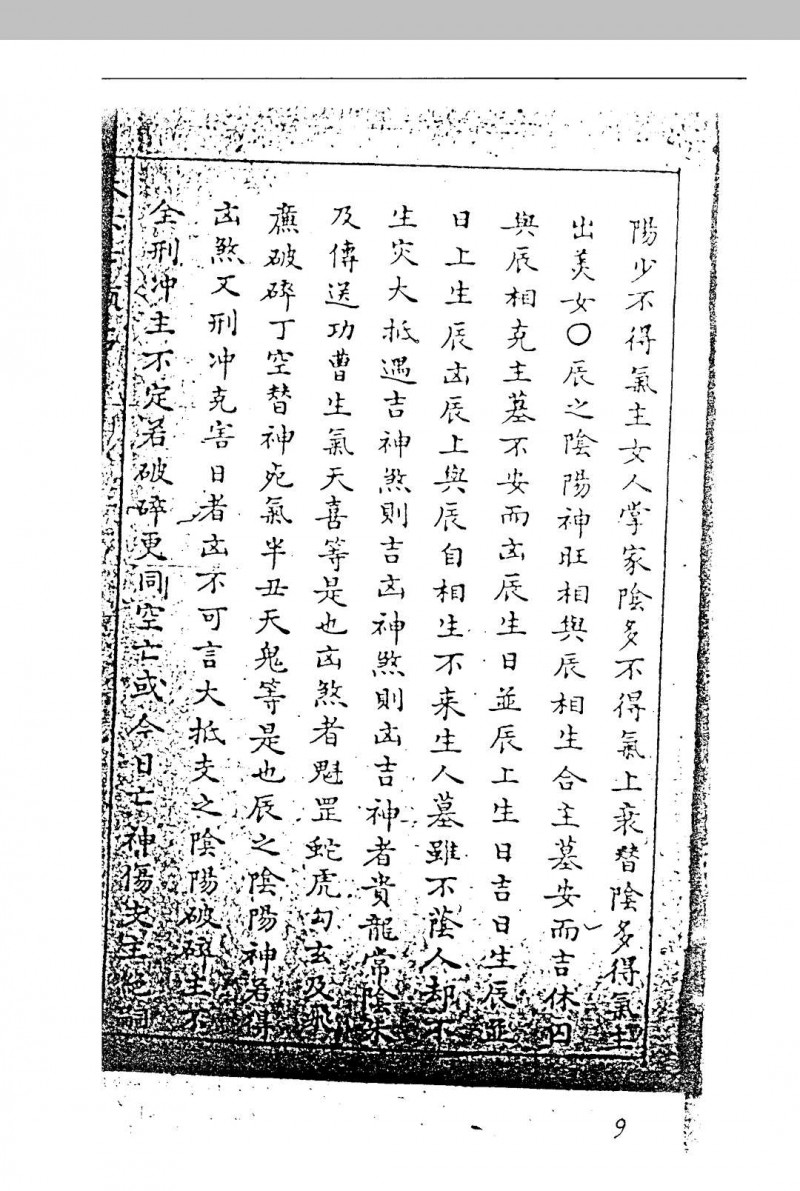 陽少不得氣主女人掌家陰多不得氣上衰替陰多得氣主
出美女〇辰之陰陽神旺相與辰相生合主墓安而吉休囚
與辰相克主墓不安而凶辰生日並辰上生日吉日生辰並
日上生辰凶辰上與辰自相生不来生人墓雖不蔭人却不
生灾大抵遇吉神煞則吉凶神煞則凶吉神者貴龍常陰末
及傳送功曹生氣天喜等是也凶煞者魁罡蛇虎勾玄及飛
廉破碎丁空替神死氣半丑天鬼等是也辰之陰陽神若得
凶煞又刑冲克害日者凶不可言大抵支之陰陽破碎主不
全刑冲主不定若破碎更同空亡或今日亡神傷支主絶嗣
9